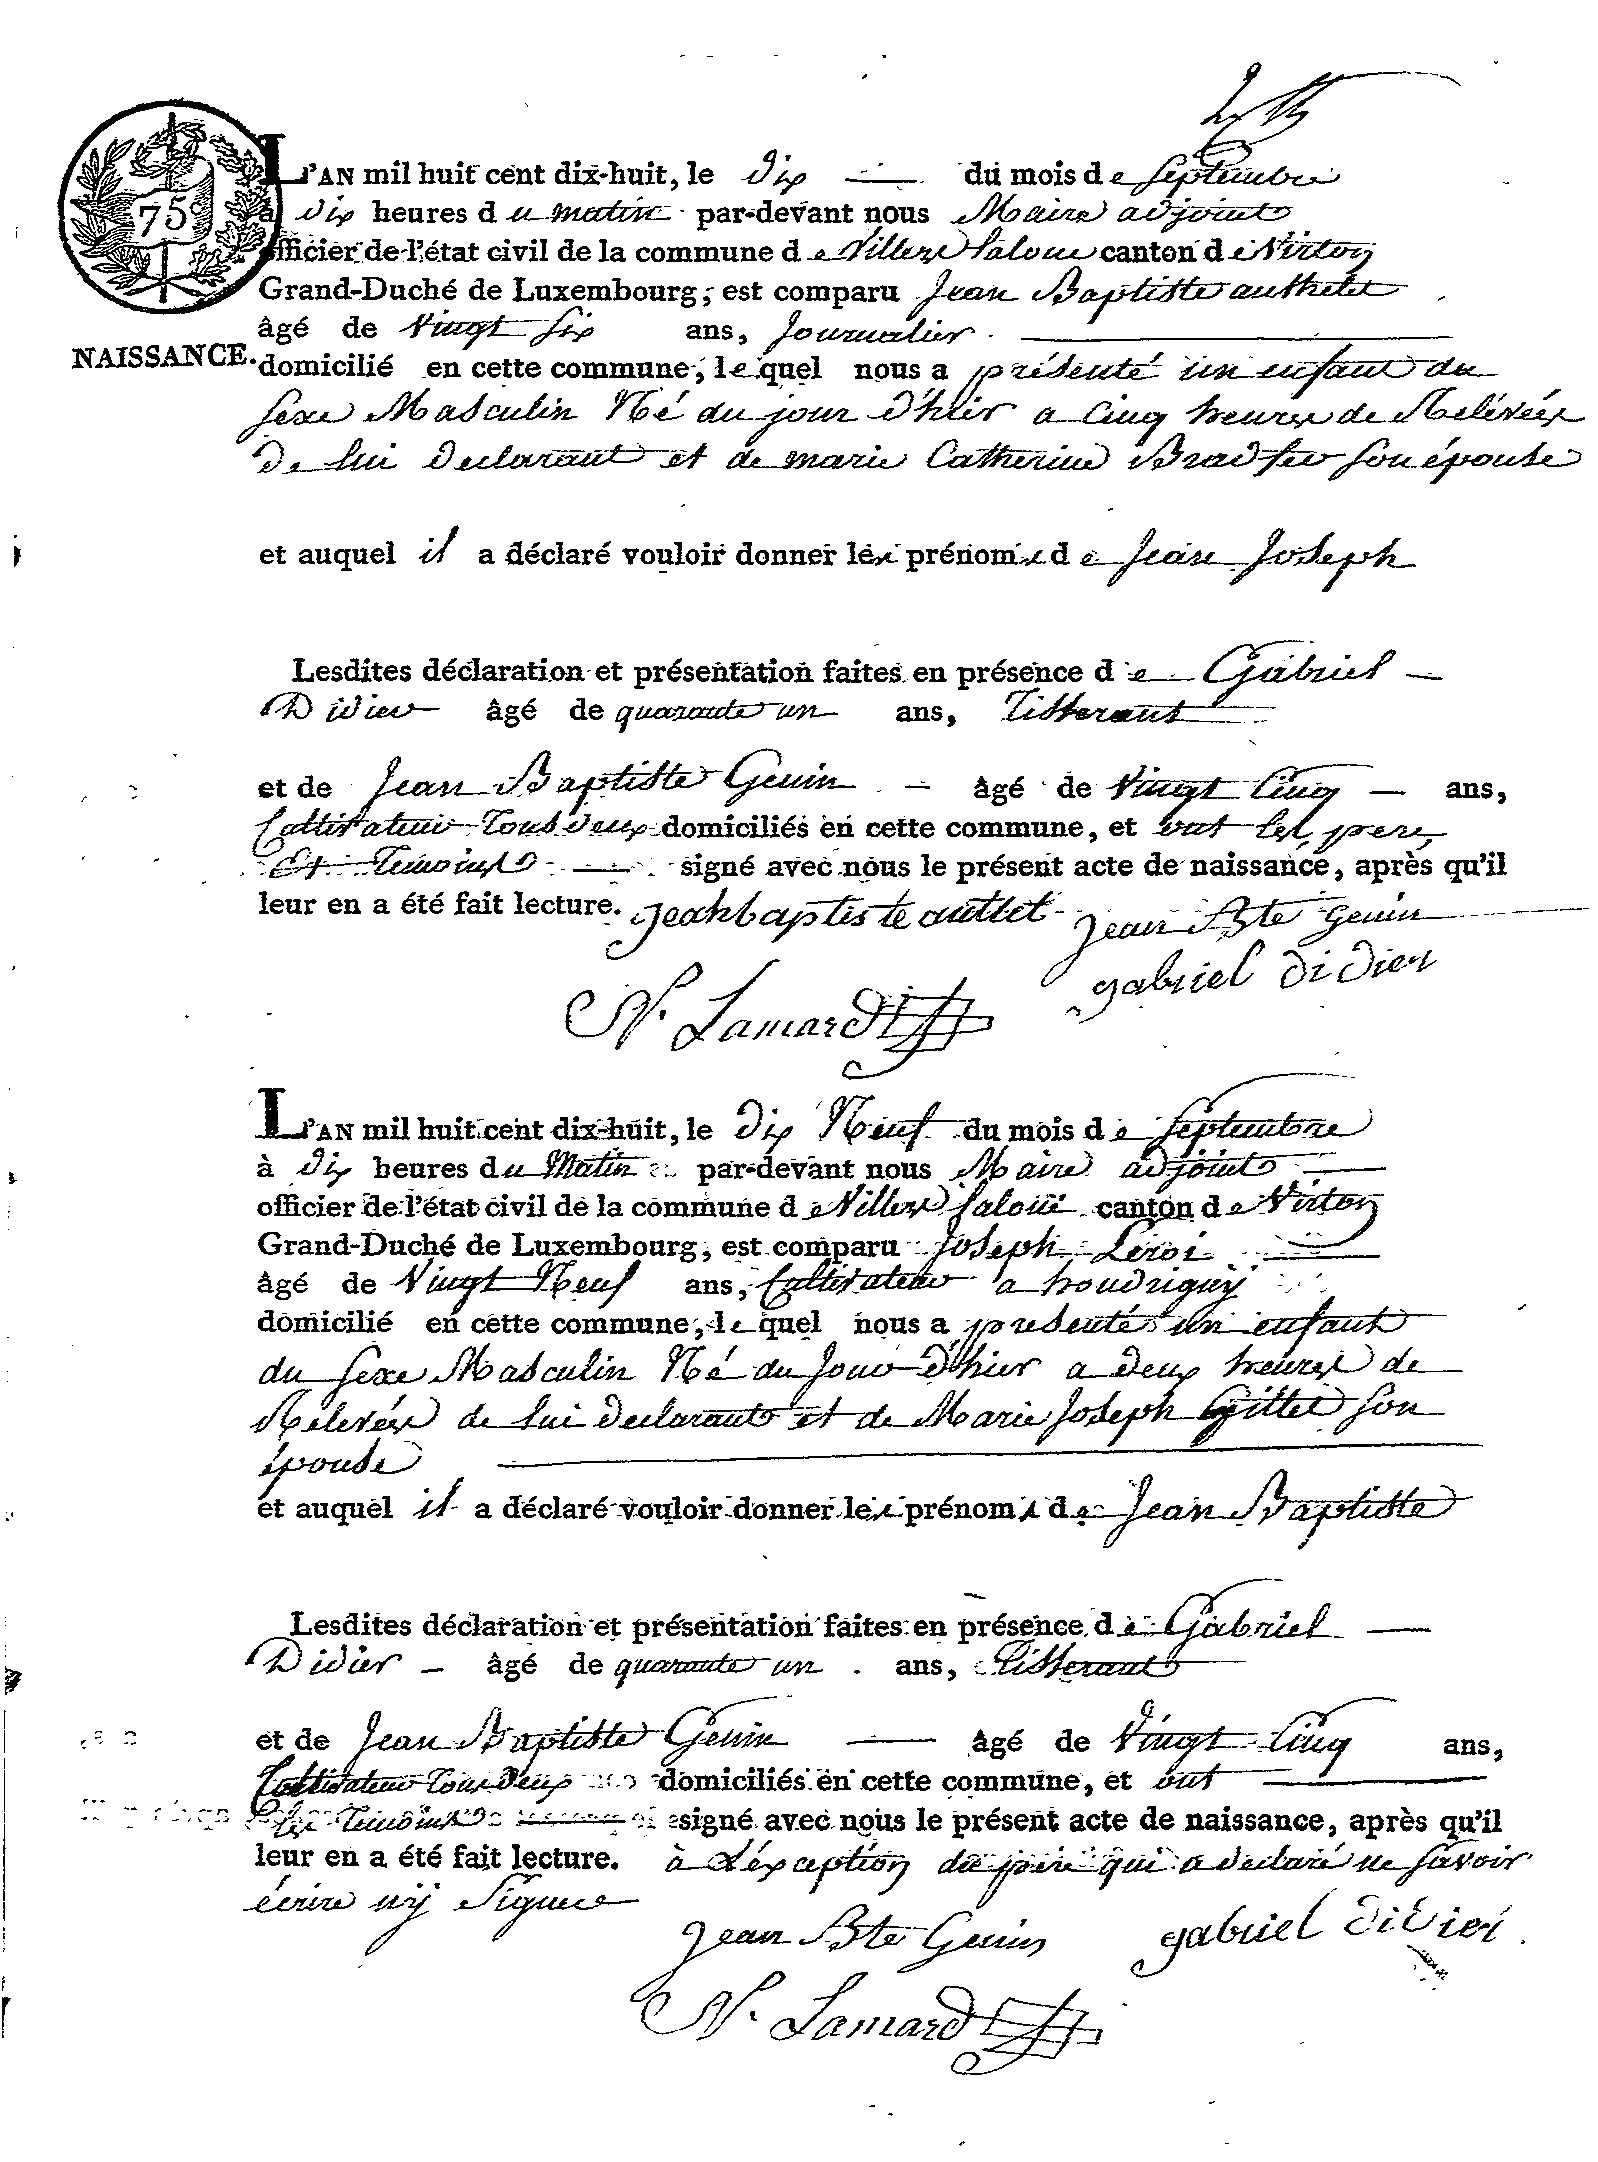 L'AN mil huit cent dix-huit, le dix du mois de Septembre
75c
à dix heures du matin par-devant nous Maire adjoint
officier de l'état civil de la commune de Villers Laloue canton de Virton
Grand-Duché de Luxembourg, est comparu Jean Baptiste authelet
âgé de Vingt Six ans, Journalier
NAISSANCE. domicilié en cette commune, lequel nous a présenté un enfant du
Sexe Masculin Né du jour d'hier a Cinq heures de Relévées
de lui declarant et de marie Catherine Bradfer son épouse
et auquel il a déclaré vouloir donner les prénoms de Jean Joseph
Lesdites déclaration et présentation faites en présence de Gabriel
Didier âgé de quarante un ans, Tisserant
et de Jean Baptiste Genin âgé de Vingt Cinq ans,
Cultivateur Tous deux domiciliés en cette commune, et ont les pere,
Et Temoins signé avec nous le présent acte de naissance, après qu'il
leur en a été fait lecture. jeahbaptiste autlet jean Bte genin
gabriel didier
N. Lamard
L'AN mil huit cent dix-huit, le Dix Neuf du mois de Septembre
à dix heures du Matin par-devant nous Maire adjoint
officier de l'état civil de la commune de Villers Laloue canton de Virton
Grand-Duché de Luxembourg, est comparu Joseph Leroi
âgé de Vingt Neuf ans, Cultivateur a houdrigny
domicilié en cette commune, lequel nous a présenté un enfant
du Sexe Masculin Né du Jour d'hier a deux heures de
Relevées de lui declarant et de Marie Joseph Gillet son
épouse
et auquel il a déclaré vouloir donner les prénoms de Jean Baptiste
Lesdites déclaration et présentation faites en présence de Gabriel
Didier âgé de quarante un ans, Tisserant
et de Jean Baptiste Genin âgé de Vingt Cinq ans,
Cultivateur Tous deux domiciliés en cette commune, et ont
les Temoins signé avec nous le présent acte de naissance, après qu'il
leur en a été fait lecture. à L'éxception du pere qui a declaré ne savoir
écrire ny Signer
jean Bte Genin gabriel didier
N. Lamard